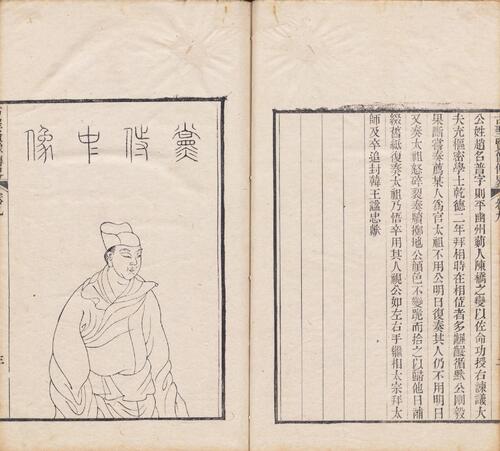 公姓趙名普字則平幽州薊人陳橋之變以佐命功授右諫議大
夫充樞密學士乾德二年拜相時在相位者多齷齪循默公剛毅
果斷嘗奏薦某人爲官太祖不用公明日復奏其人仍不用明日
又奏太祖怒碎裂奏牘擲地公顏色不變跪而拾之以歸他日補
綴舊紙復奏太祖乃悟卒用其人視公如左右手繼相太宗拜太
師及卒追封韓王諡忠獻
黨侍中像